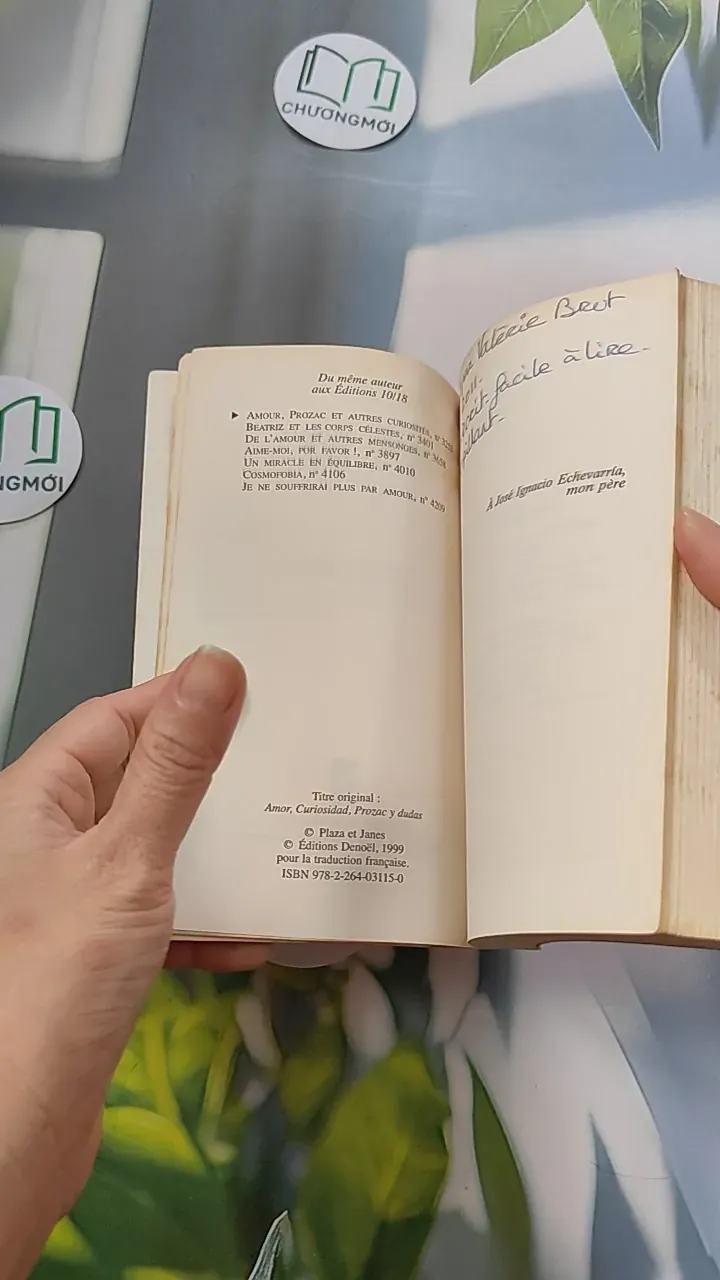 CHƯƠNGMỚI
NGMỚI
Du même auteur
aux Éditions 10/18
▶ AMOUR, PROZAC ET AUTRES CURIOSITÉS,
BEATRIZ ET LES CORPS CÉLESTES, n° 3401
DE L'AMOUR ET AUTRES MENSONGES,
AIME-MOI, POR FAVOR !, n° 3897
UN MIRACLE EN ÉQUILIBRE, n° 4010
COSMOFOBIA, n° 4106
JE NE SOUFFRIRAI PLUS PAR AMOUR, n° 4209
Titre original :
Amor, Curiosidad, Prozac y dudas
© Plaza et Janes
© Éditions Denoël, 1999
pour la traduction française.
ISBN 978-2-264-03115-0
Valérie Brot
facile à lire.
À José Ignacio Echevarría,
mon père